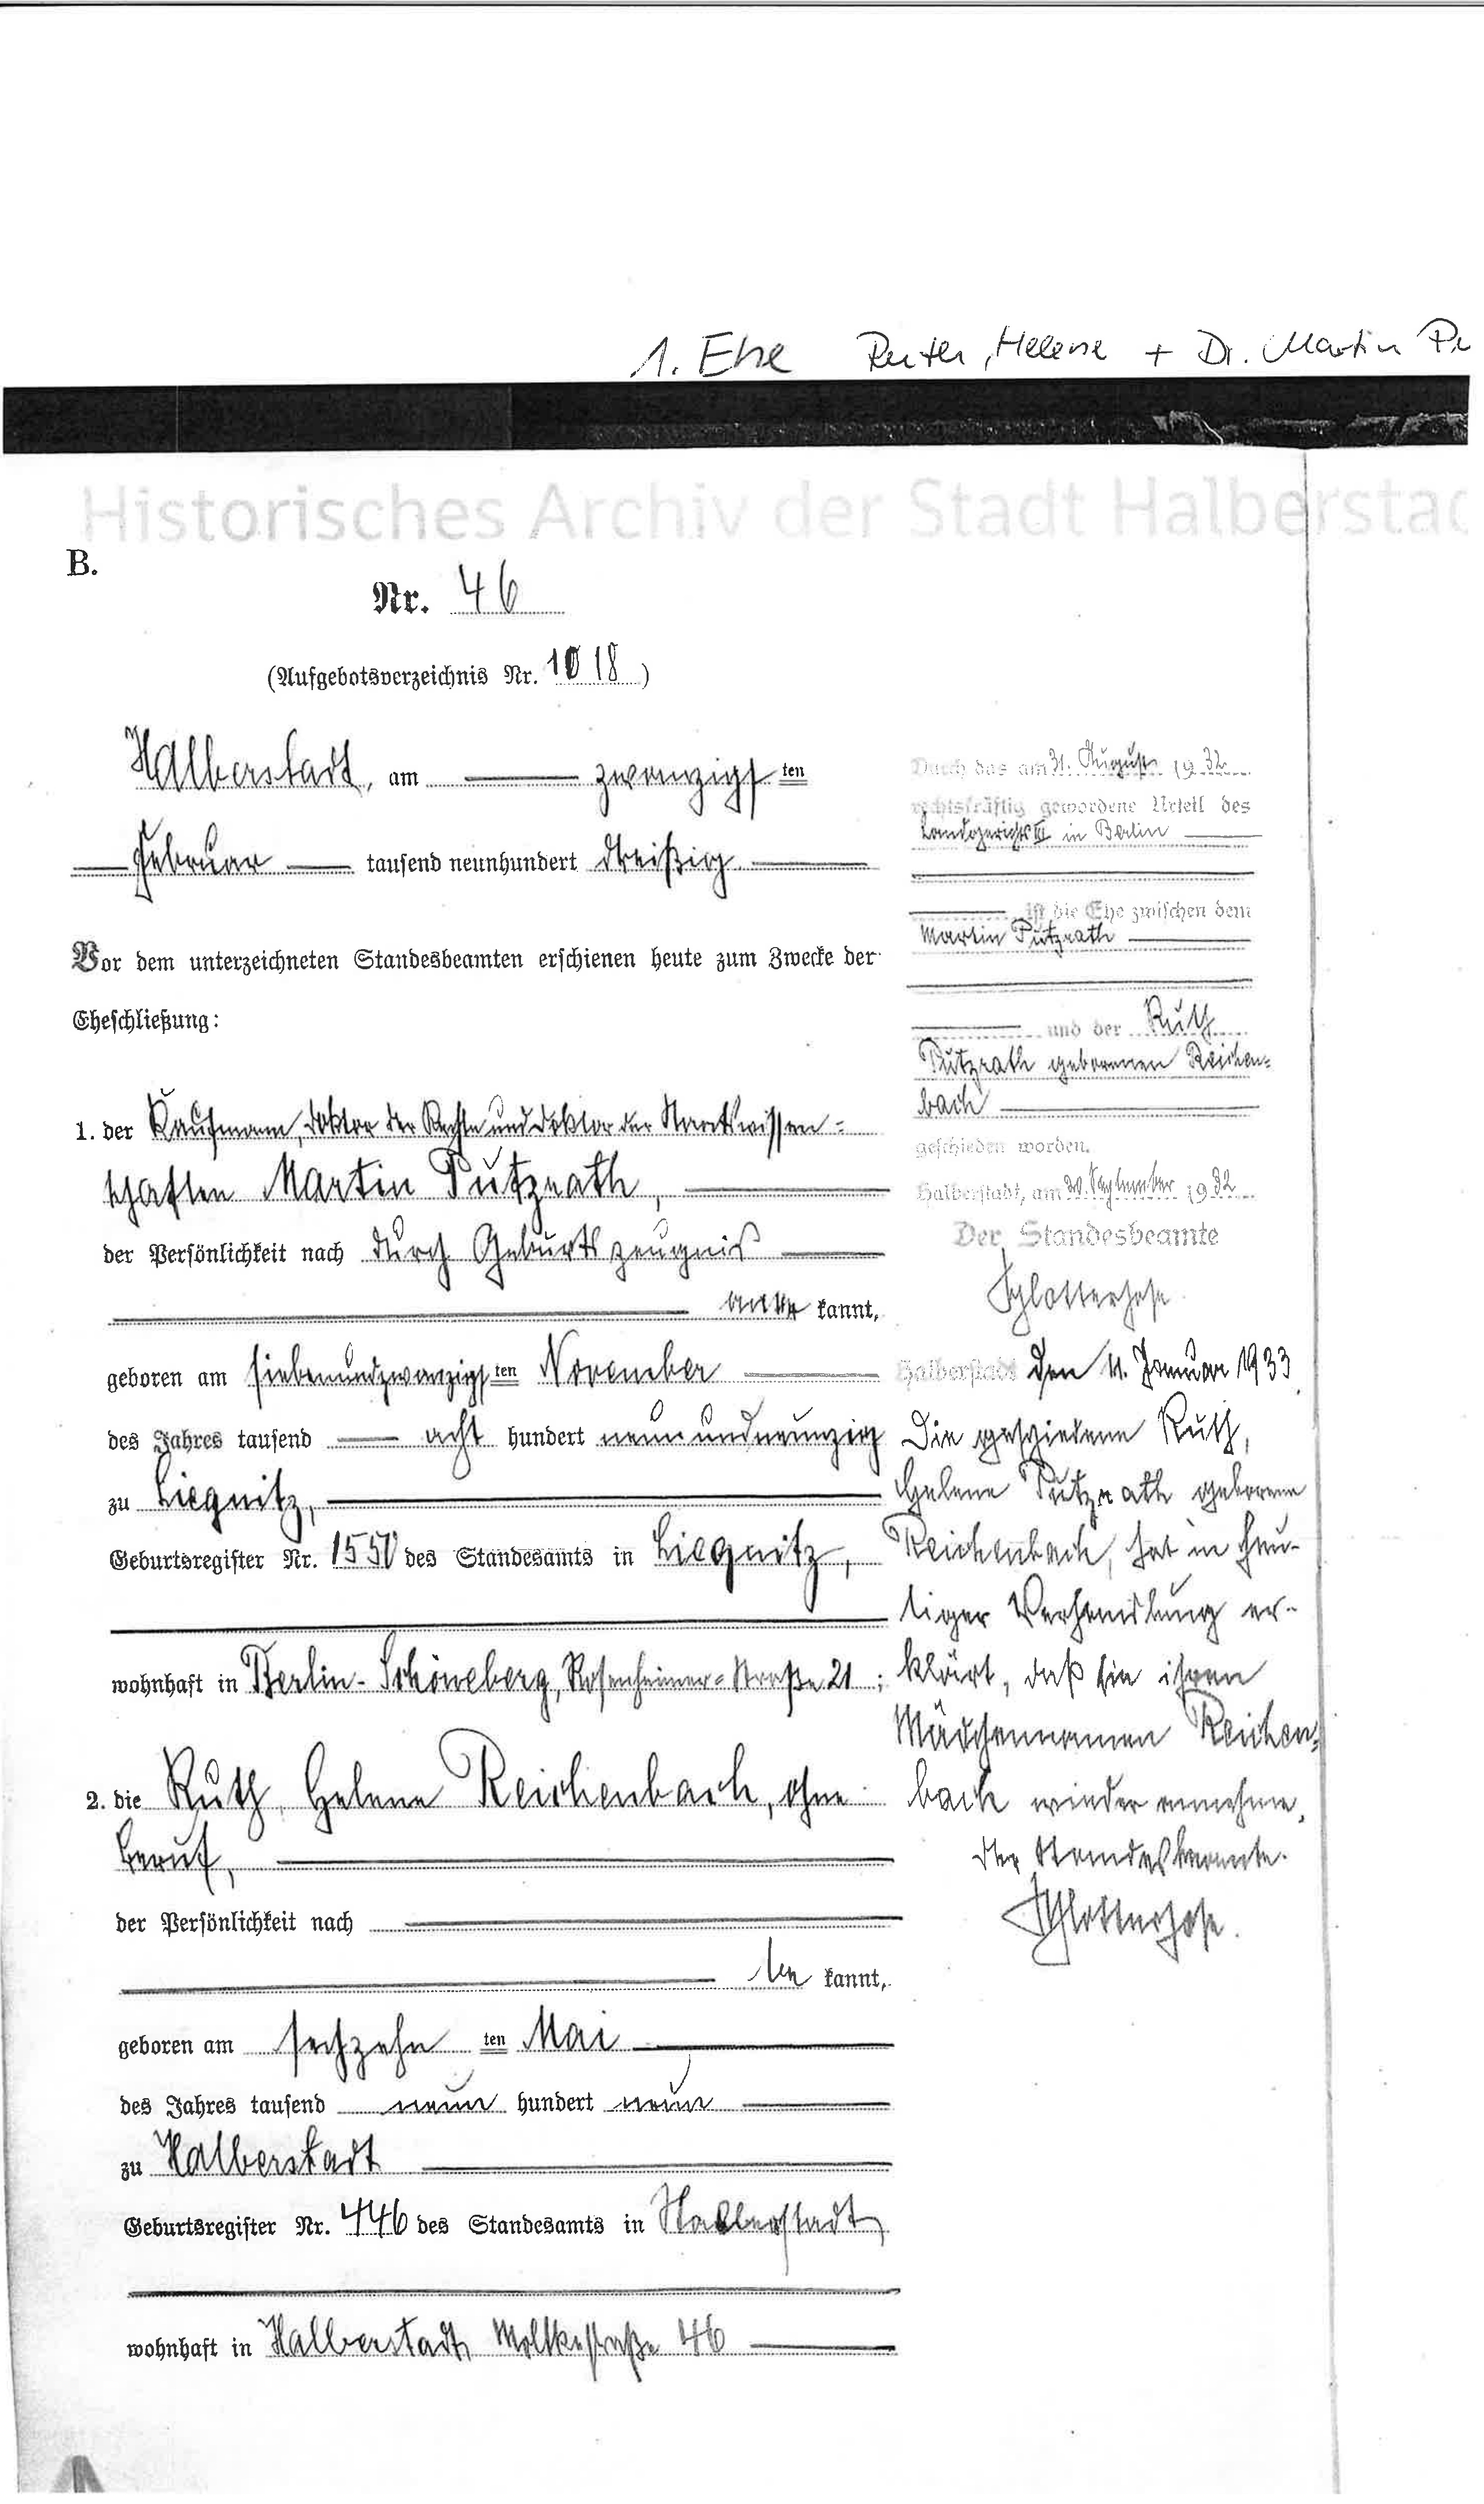 1. Ehe Reiter, Helene + Dr. Martin
Historisches Archiv der Stadt Halberstad
B.
Nr. 46
(Aufgebotsverzeichnis Nr. 1018)
Halberstadt, am zwanzigsten
Februar tausend neunhundert dreißig
Vor dem unterzeichneten Standesbeamten erschienen heute zum Zwecke der
Eheschließung:
1. der Kaufmann, Doktor der Rechte und Doktor der Staatswissen-
schaften Martin Putzrath,
der Persönlichkeit nach durch Geburtszeugnis
aner kannt,
geboren am siebenundzwanzigsten November
des Jahres tausend acht hundert neunundneunzig
zu Liegnitz,
Geburtsregister Nr. 1550 des Standesamts in Liegnitz,
wohnhaft in Berlin-Schöneberg, Rosenheimer-Straße 21;
2. die Ruth, Helene Reichenbach, ohne
Beruf,
der Persönlichkeit nach
be kannt,
geboren am sechzehn ten Mai
des Jahres tausend neun hundert neun
zu Halberstadt
Geburtsregister Nr. 446 des Standesamts in Halberstadt
wohnhaft in Halberstadt, Moltkestraße 46
Durch das am 31. August 1932
rechtskräftig gewordene Urteil des
Landgerichts III in Berlin
ist die Ehe zwischen dem
Martin Putzrath
und der Ruth
Putzrath geborenen Reichen-
bach
geschieden worden.
Halberstadt, am 20. September 1932
Der Standesbeamte
Schlotterhose
Halberstadt den 11. Januar 1933
Die geschiedene Ruth,
Helene Putzrath geborene
Reichenbach, hat in heu-
tiger Verhandlung er-
klärt, daß sie ihren
Mädchennamen Reichen-
bach wieder annehme.
Der Standesbeamte.
Schlotterhose.